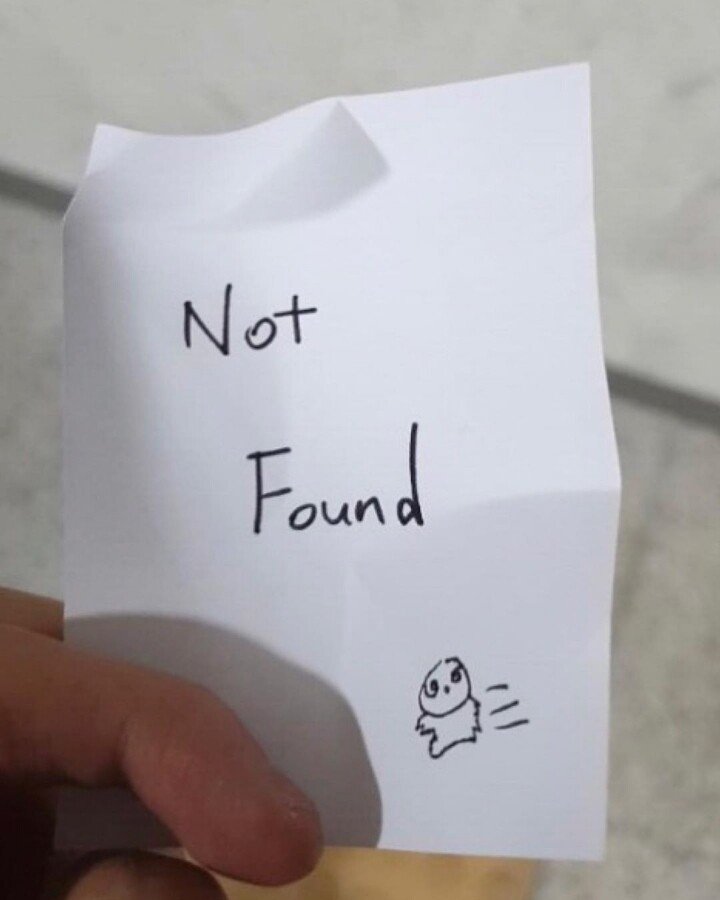 Not
Found